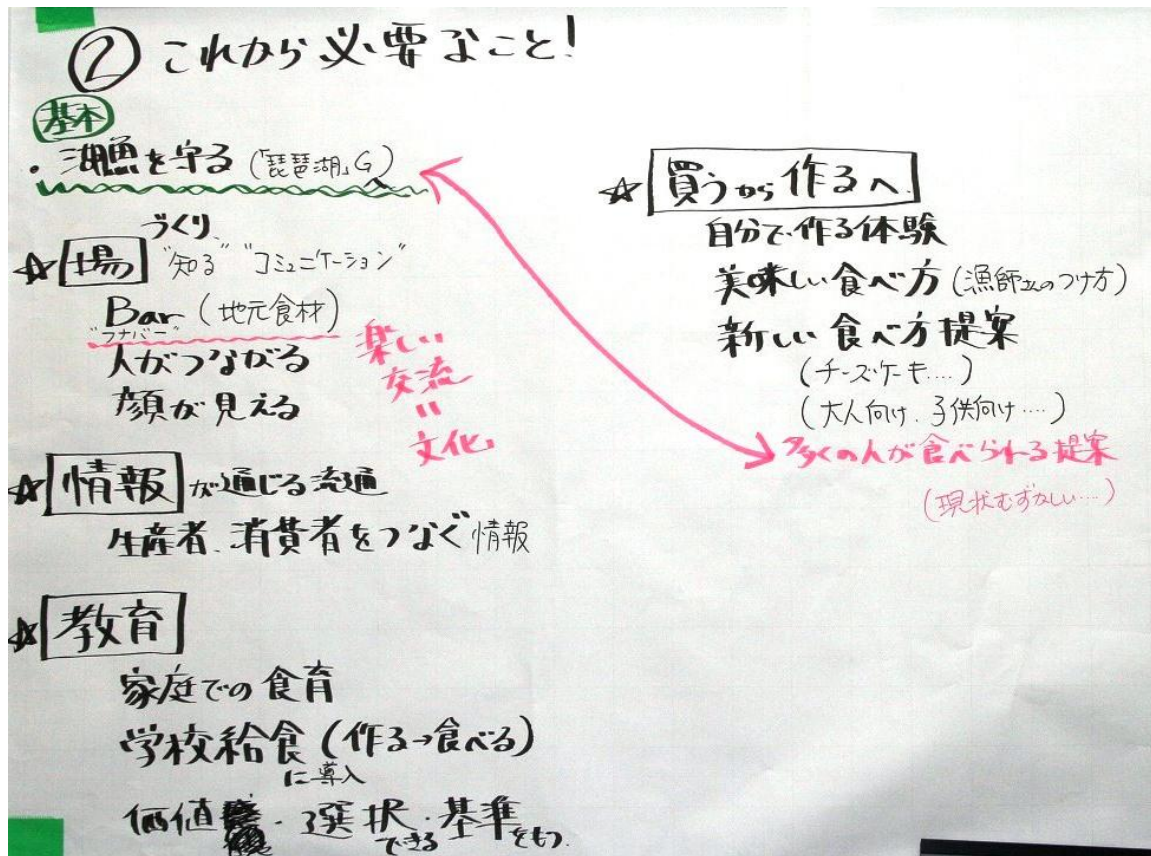 ② これから必要なこと!
基本
・湖魚を守る(「琵琶湖」Gへ)
☆場づくり "知る" "コミュニケーション"
Bar(地元食材)
"フナバー"
人がつながる
顔が見える
楽しい
交流
=
文化
☆情報が通じる流通
生産者、消費者をつなぐ情報
☆教育
家庭での食育
学校給食(作る→食べる)
に導入
価値・選択・基準
できる をもつ
☆買うから作るへ
自分で作る体験
美味しい食べ方(漁師さんのつけ方)
新しい食べ方提案
(チーズケーキ....)
(大人向け、子供向け....)
多くの人が食べられる提案
(現状むずかしい...)